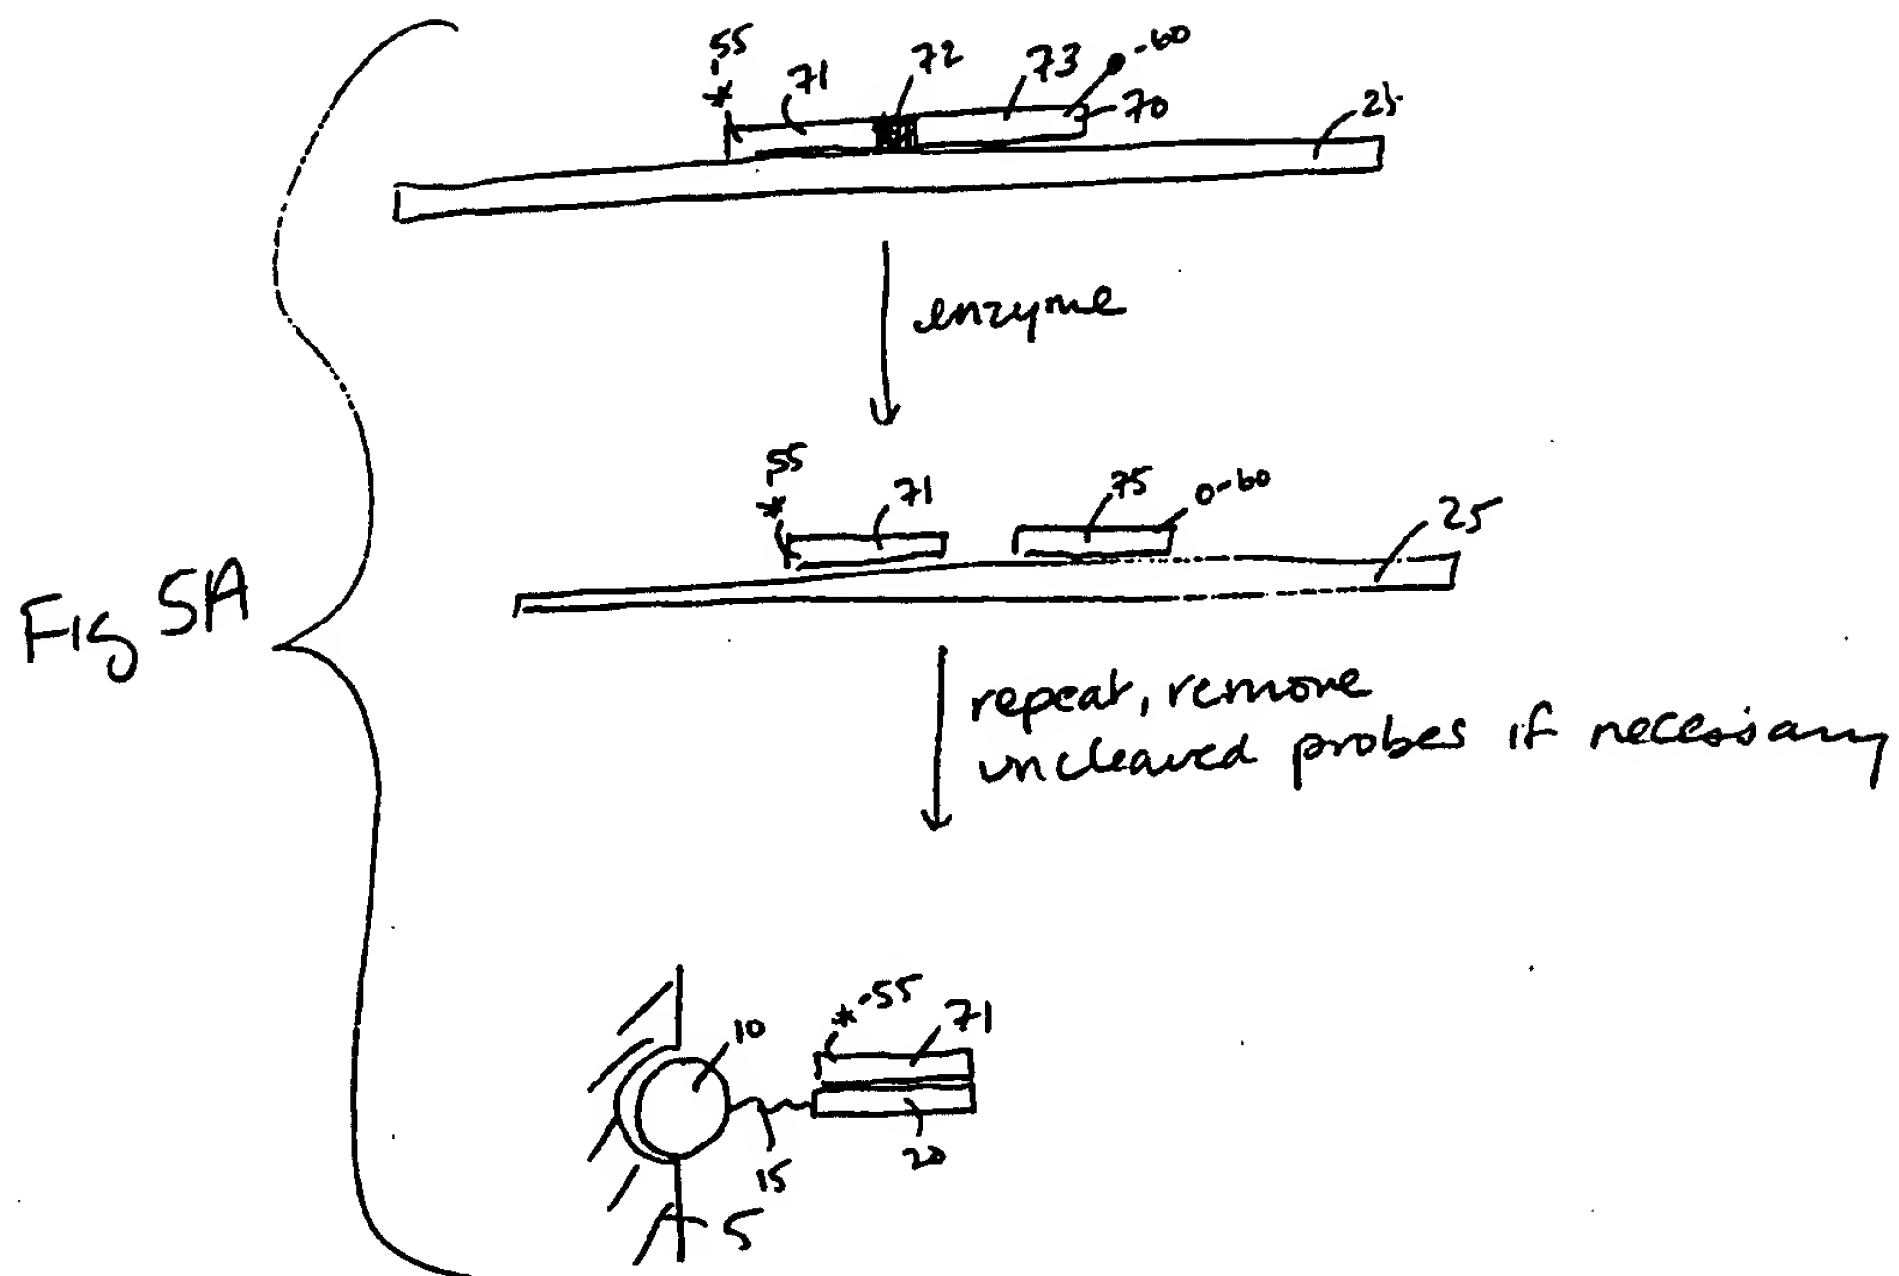 -55
71
72
73
-60
70
25
enzyme
-55
71
75
-60
25
Fig 5A
repeat, remove
uncleaved probes if necessary
-55
71
10
15
20
5